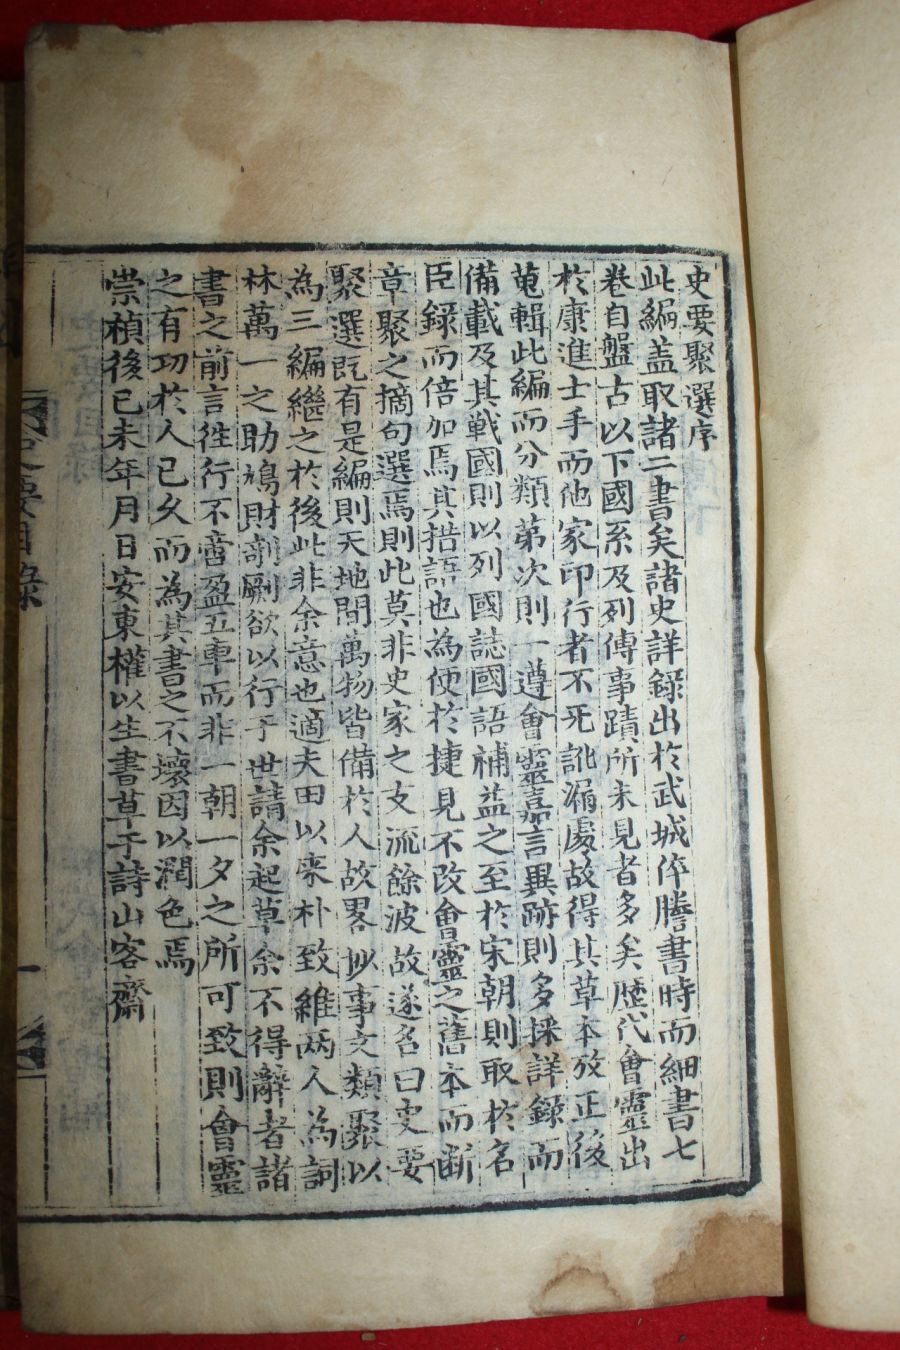 史要聚選序
此編盖取諸二書矣諸史詳錄出於武城倅謄書時而細書七
卷自盤古以下國系及列傳事蹟所未見者多矣歷代會靈出
於康進士手而他家印行者不无訛漏處故得其草本攷正後
蒐輯此編而分類第次則一遵會靈嘉言異跡則多採詳錄而
備載及其戰國則以列國誌國語補益之至於宋朝則取於名
臣錄而倍加焉其措語也為便於捷見不改會靈之舊本而断
章聚之摘句選焉則此莫非史家之支流餘波故遂名曰史要
聚選旣有是編則天地間萬物皆備於人故畧抄事文類聚以
為三編繼之於後此非余意也適夫田以采朴致維兩人為詞
林萬一之助鳩財剞劂欲以行于世請余起草余不得辭者諸
書之前言徃行不啻盈五車而非一朝一夕之所可致則會靈
之有功於人已久而為其書之不壞因以潤色焉
崇禎後己未年月日安東權以生書草于詩山客齋
史要目錄
一